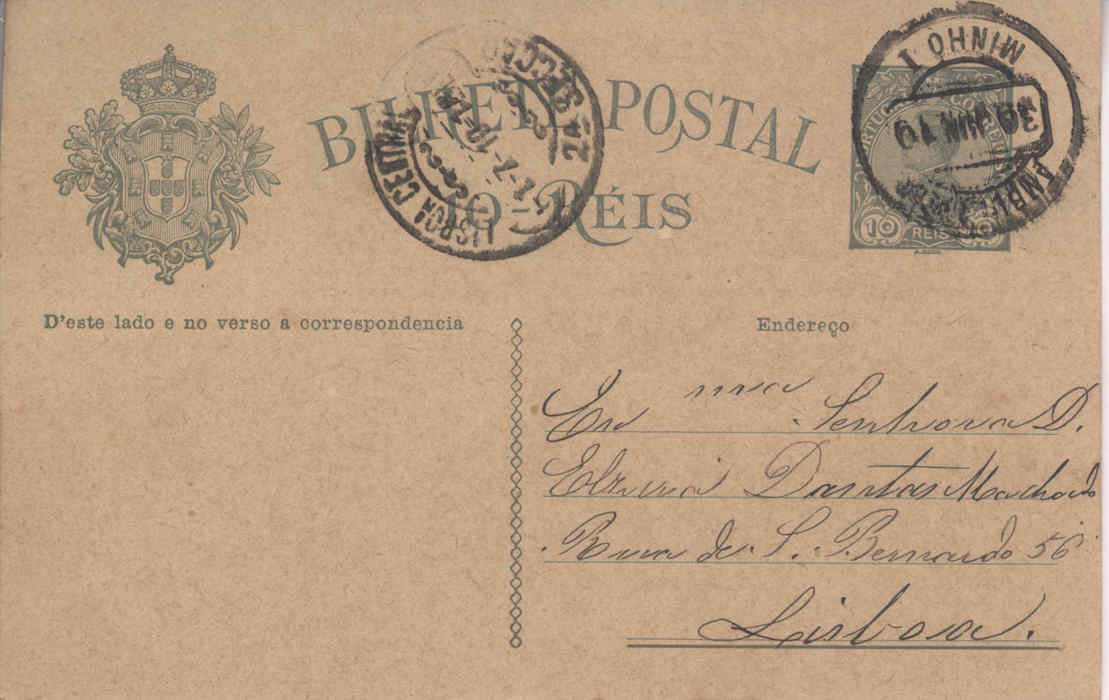 BILHETE POSTAL
10 RÉIS
LISBOA CENTRAL
2ª SECCÃO
MINHO I
30 JUN 10
10 REIS
D'este lado e no verso a correspondencia
Endereço
Exma Senhora D.
Elzira Dantas Machado
Rua de S. Bernardo 56
Lisboa.